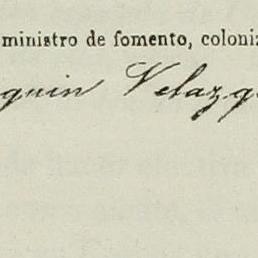 ministro de fomento, coloniz
quin Velazq